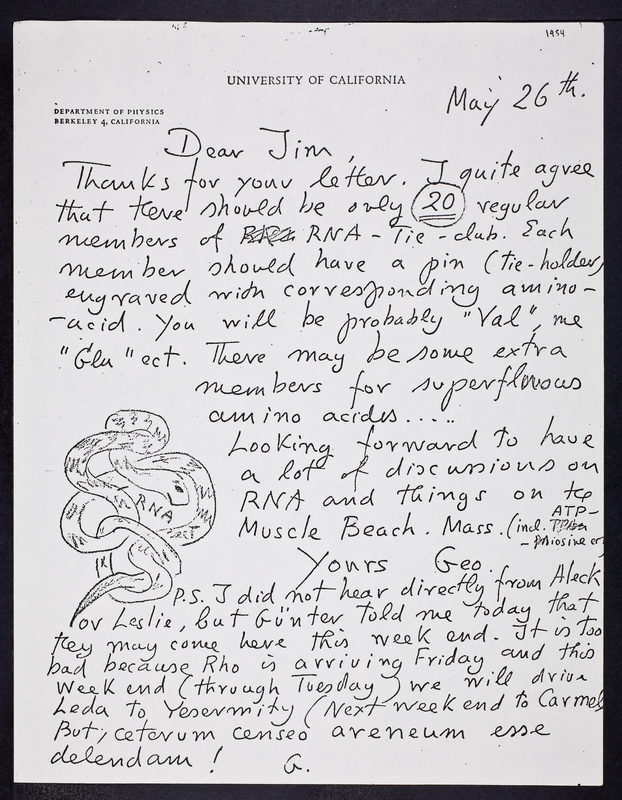 1954
UNIVERSITY OF CALIFORNIA
May 26th.
DEPARTMENT OF PHYSICS
BERKELEY 4, CALIFORNIA
Dear Jim,
Thanks for your letter. I quite agree
that there should be only 20 regular
members of RNA-Tie-club. Each
member should have a pin (tie-holder)
engraved with corresponding amino-
-acid. You will be probably "Val", me
"Glu" ect. There may be some extra
members for superfluous
amino acides.....
Looking forward to have
a lot of discussions on
RNA and things on the
Muscle Beach. Mass. (incl. ATP-
RNA
Yours Geo.
P.S. I did not hear directly from Aleck
or Leslie, but Günter told me today that
they may come here this week end. It is too
bad because Rho is arriving Friday and this
week end (through Tuesday) we will drive
Leda to Yosermity (Next week end to Carmel
But, ceterum censeo areneum esse
delendam!
G.